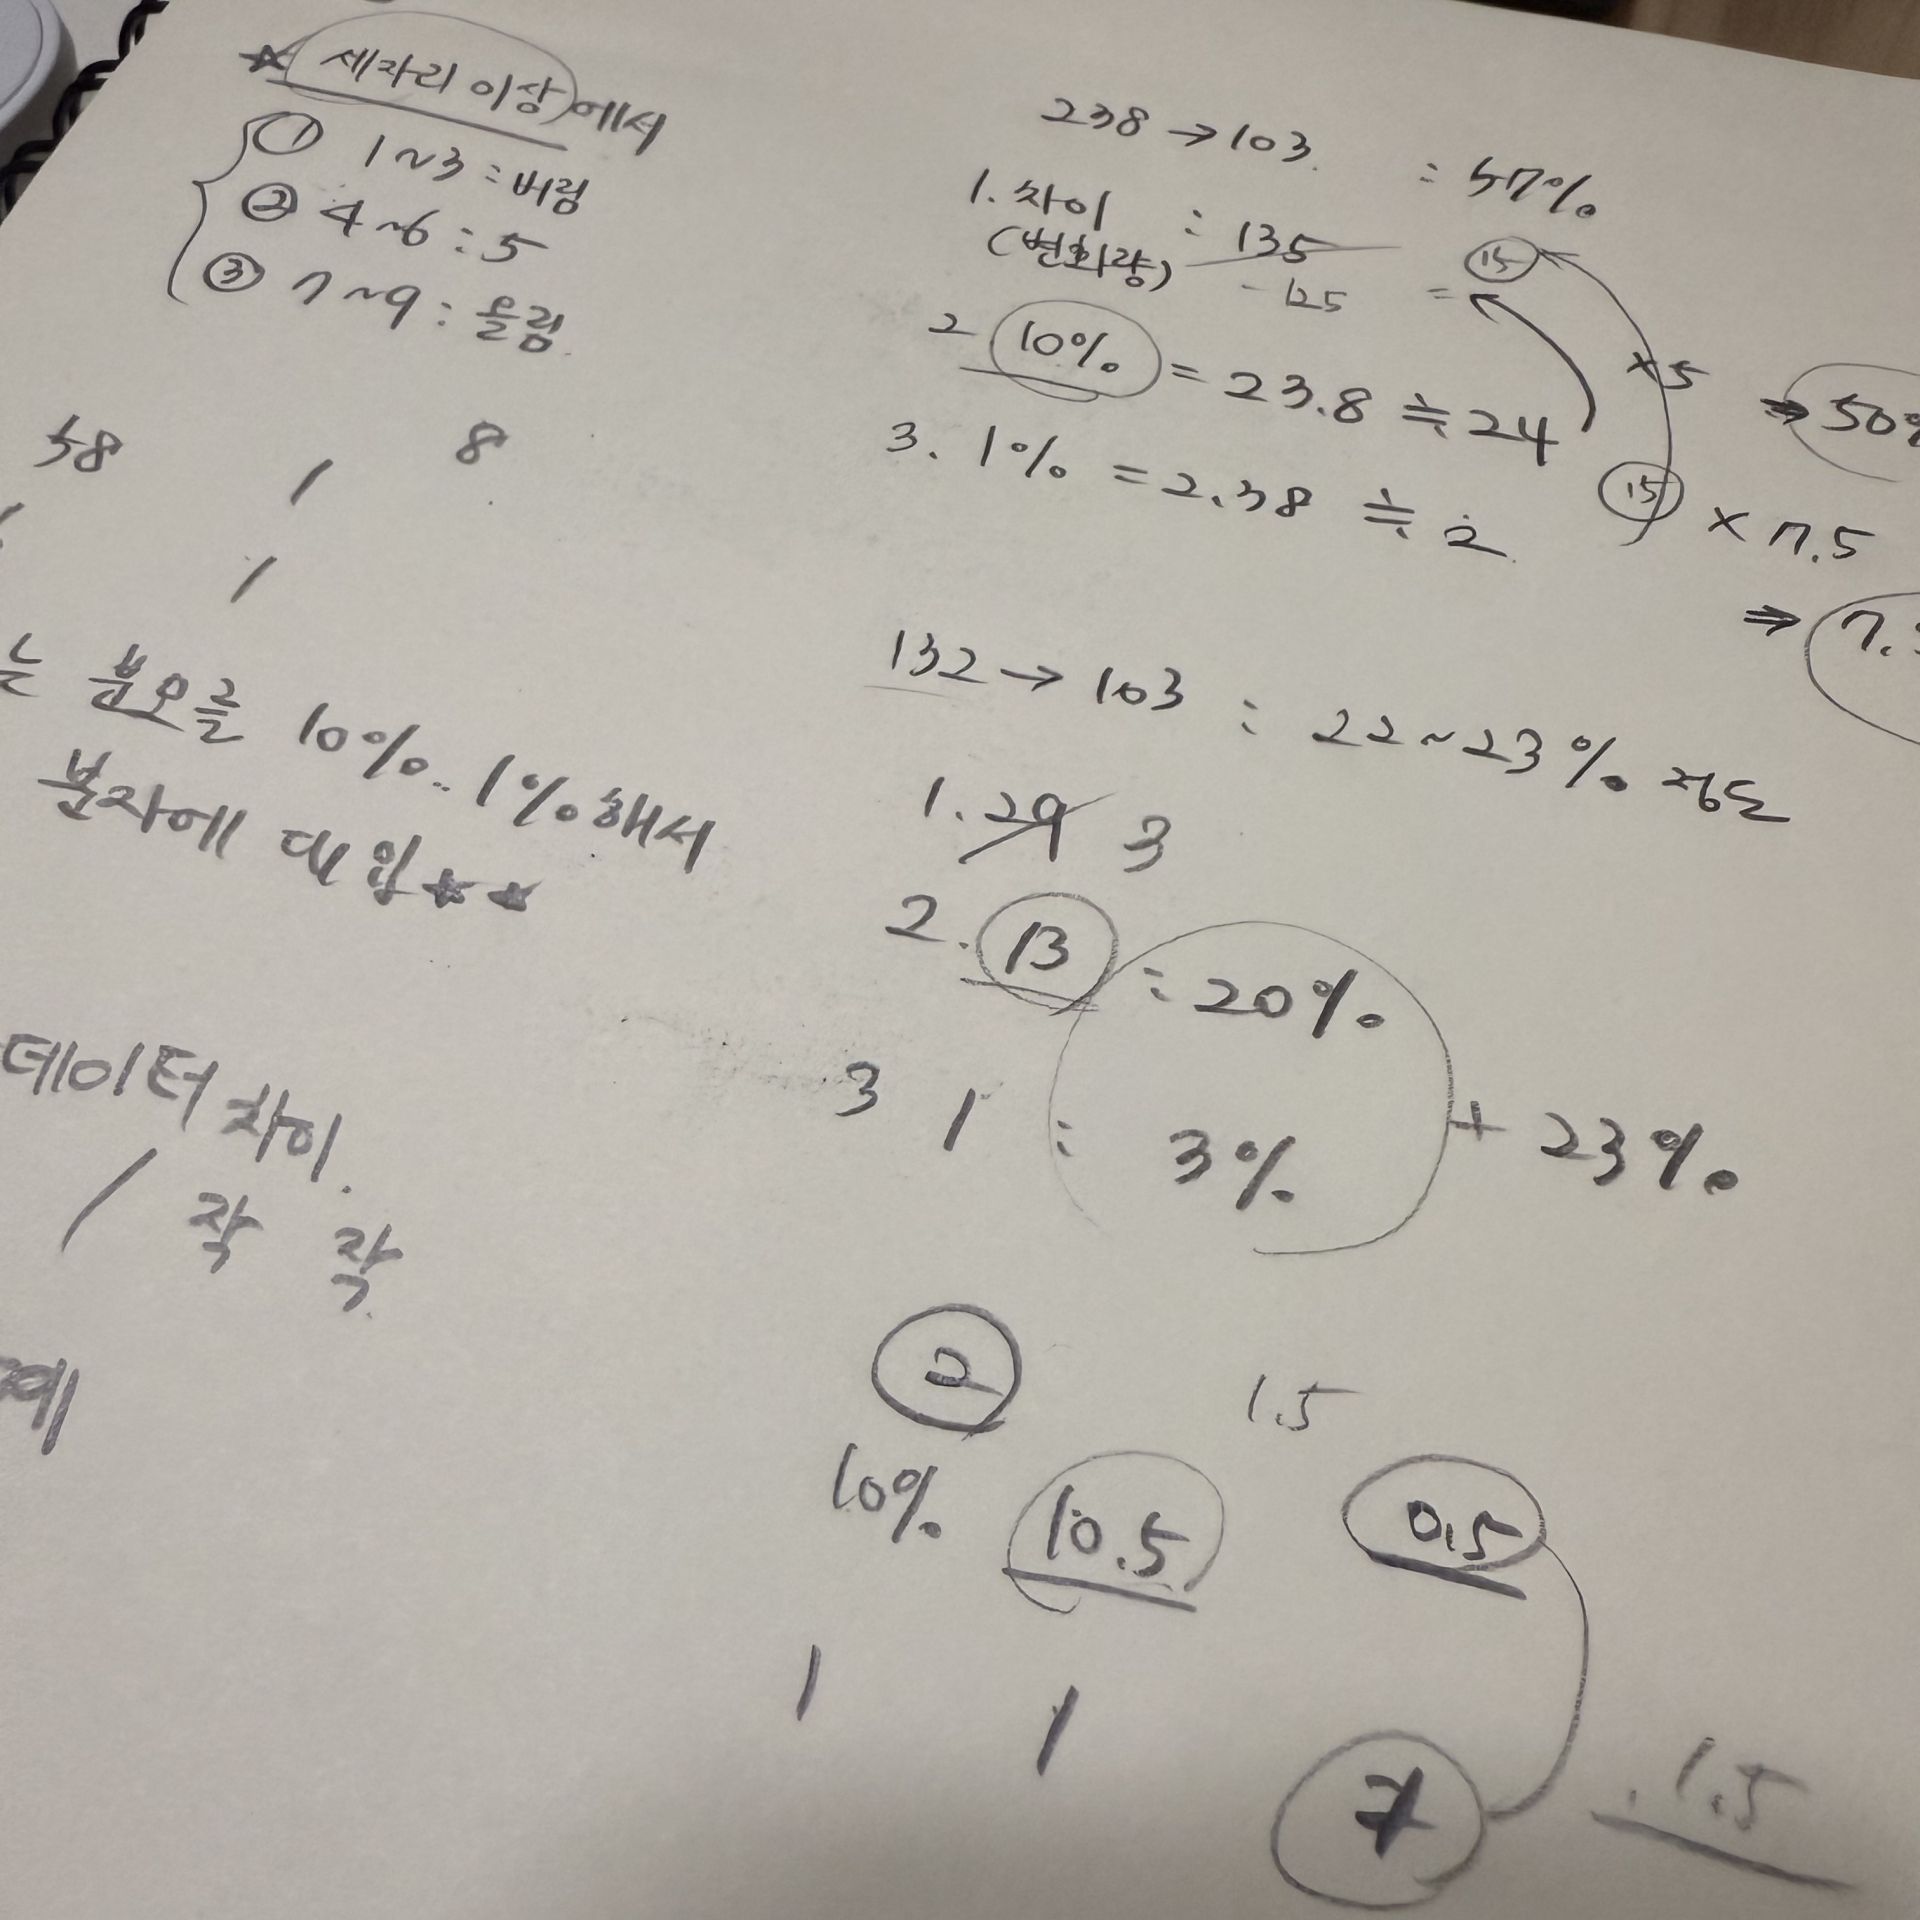 ★ 세자리 이상에서
① 1~3 : 버림
② 4~6 : 5
③ 7~9 : 올림.
58 / 8
/
는 분모를 10%.. 1%해서
분자에 대입★★
데이터 차이.
/ 작 작
238 → 103. : 57%
1. 차이 : 135 15
(변화량) - 125 =
2 10% = 23.8 ≒ 24 ×5 ⇒ 50%
3. 1% = 2.38 ≒ 2 15 × 7.5
⇒ 7.5
132 → 103 : 22~23% 정도
1. 29 3
2. 13 : 20%
3 1 : 3% + 23%
2 1.5
10% 10.5 0.5
1 1
1.5